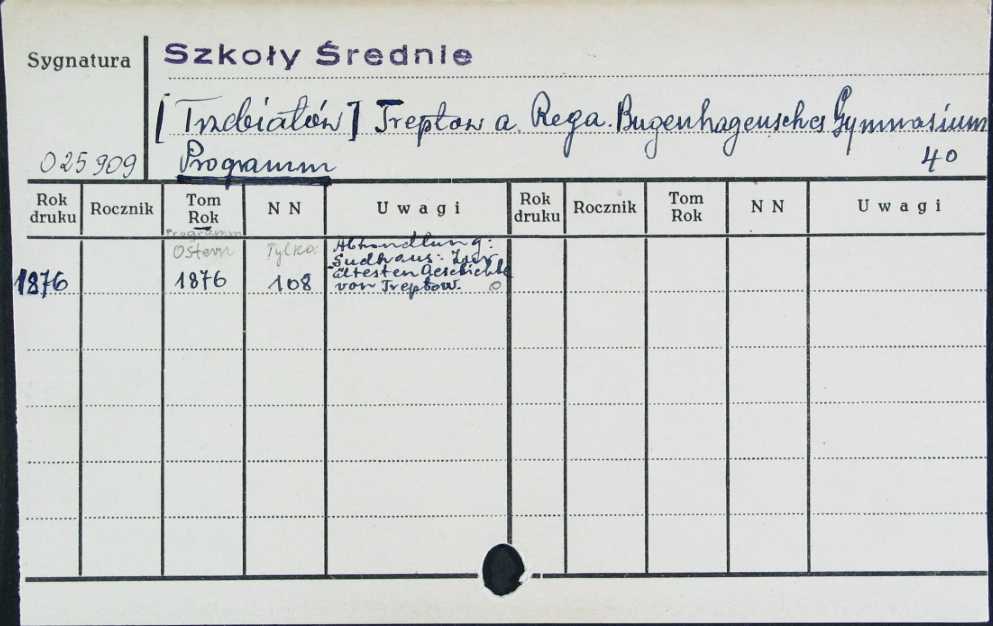 Sygnatura
Szkoły Średnie
[Trzebiatów] Treptow a. Rega. Bugenhagensches Gymnasium
025909
Programm
40
Rok druku Rocznik Tom Rok NN Uwagi Rok druku Rocznik Tom Rok NN Uwagi
Programm
Ostern Tylko: Abhandlung:
Sudhaus: Zur
1876 1876 108 ältesten Geschichte
von Treptow. 0